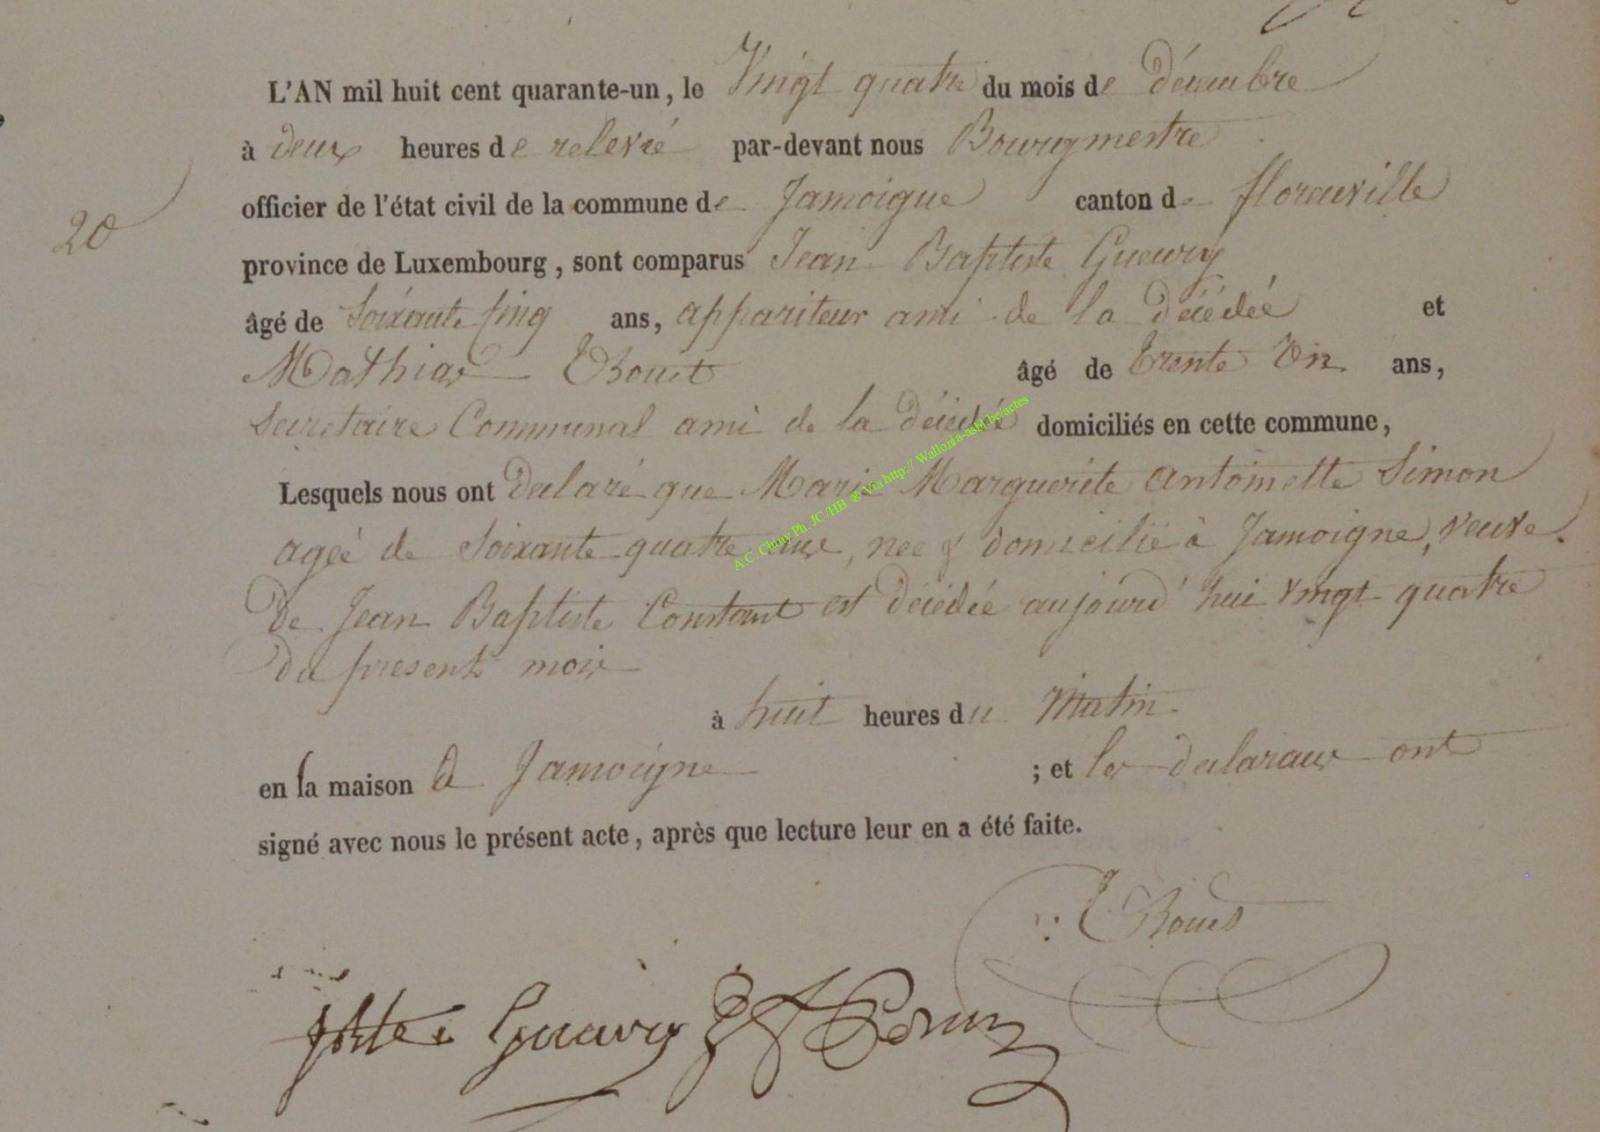 L'AN mil huit cent quarante-un, le Vingt quatre du mois de décembre
à deux heures de relevée par-devant nous Bourgmestre
officier de l'état civil de la commune de Jamoigne canton de florenville
20
province de Luxembourg, sont comparus Jean Baptiste Gueury
âgé de Soixante cinq ans, appariteur ami de la décédée et
Mathias Thouet âgé de trente un ans,
Secretaire Communal ami de la décédée domiciliés en cette commune,
Lesquels nous ont declaré que Marie Marguerite Antoinette Simon
agée de Soixante quatre ans, nee & domiciliée à Jamoigne, veuve
De Jean Baptiste Constant est décédée aujourd'hui vingt quatre
du present mois
à huit heures du Matin
en la maison à Jamoigne ; et les declarans ont
signé avec nous le présent acte, après que lecture leur en a été faite.
Thouet
Gueury
A.C. Chiny Ph. JC. HB & Via http:// Wallonia-asbl.be/actes